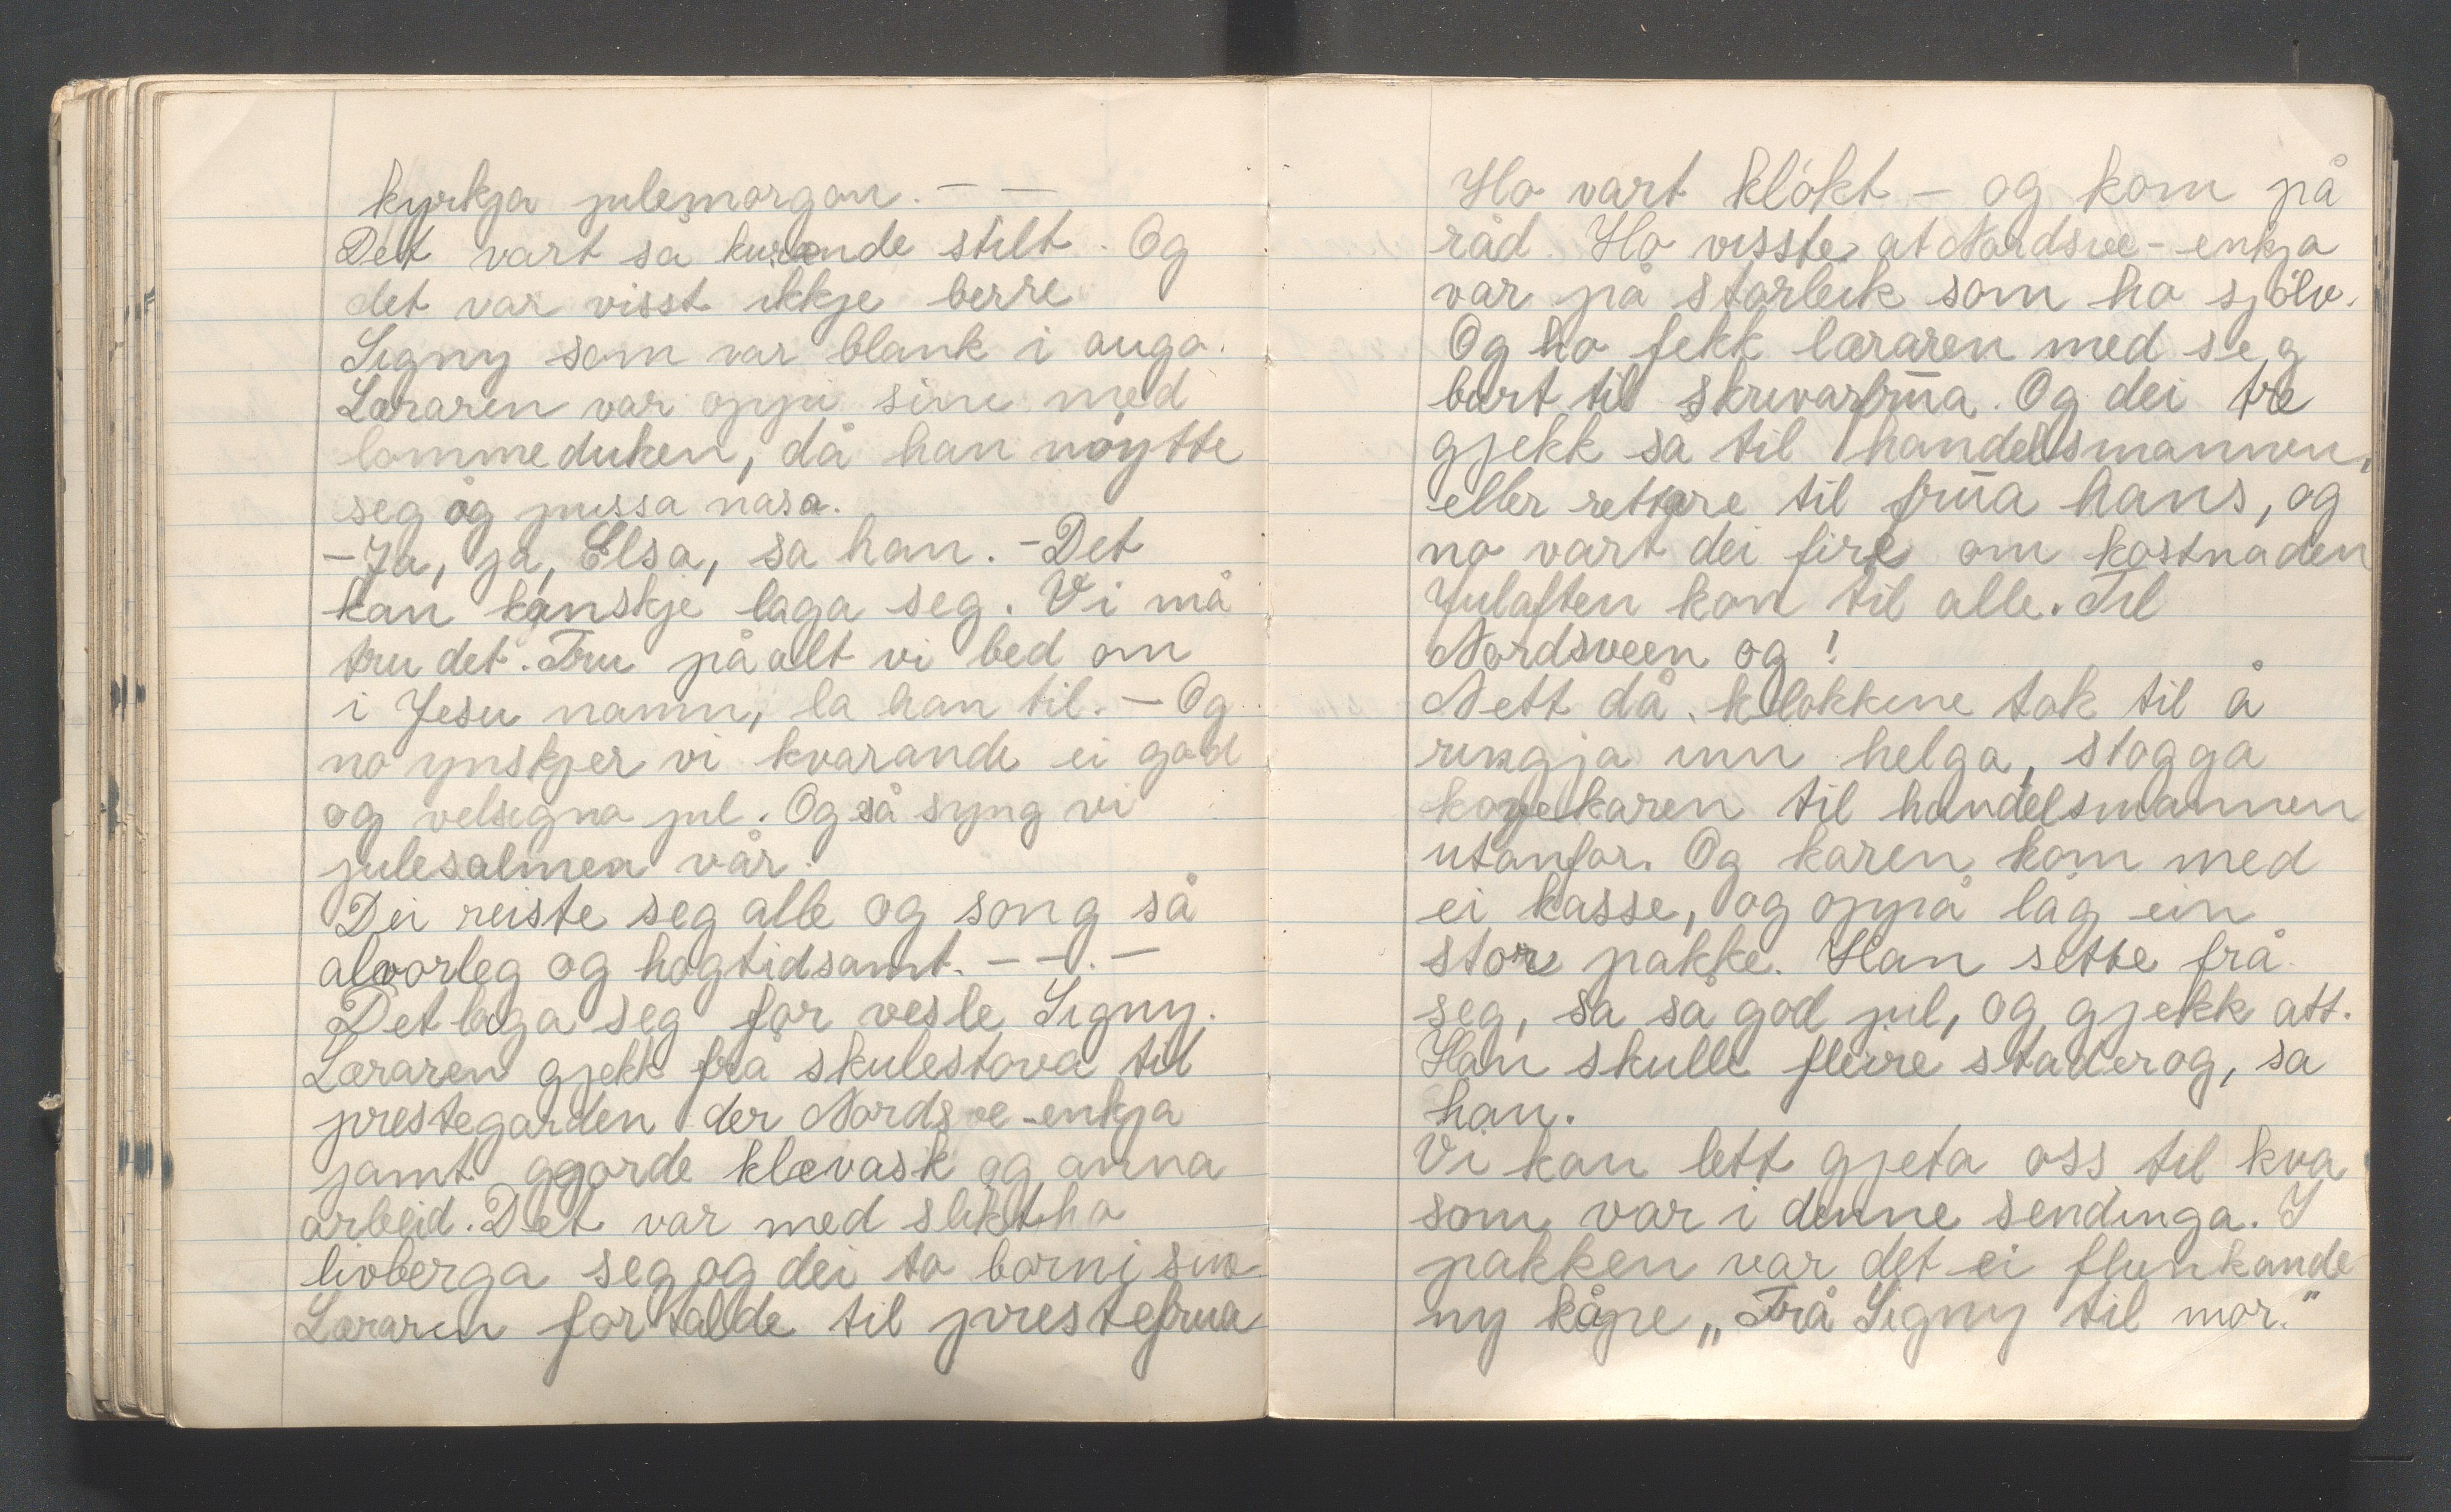 kyrkja julemorgon. — —
Det vart så kurande stilt. Og
det var visst ikkje berre
Signy som var blank i augo.
Læraren var oppi sine med
lommeduken, då han nøytte
seg og pussa nasa.
– Ja, ja, Elsa, sa han. – Det
kan kanskje laga seg. Vi må
tru det. Tru på alt vi bed om
i Jesu namn, la han til. – Og
no ynskjer vi kvarande ei god
og velsigna jul. Og så syng vi
julesalmen vår.
Dei reiste seg alle og song så
alvorleg og høgtidsamt. – – . –
Det laga seg for vesle Signy.
Læraren gjekk frå skulestova til
prestegarden der Nordsve-enkja
jamt gjorde klevask og anna
arbeid. Det var med slikt ho
livberga seg og dei to borni sine
Læraren fortalde til prestefrua
Ho vart klókt – og kom på
råd. Ho visste at Nordsve-enkja
var på storleik som ho sjölv.
Og ho fekk læraren med seg
bort til skrivarfrua. Og dei tre
gjekk så til handelsmannen,
eller rettare til frua hans, og
no vart dei fire om kostnaden
Julaften kom til alle. Til
Nordsveen og!
Nett då klokkene tok til å
ringja inn helga, stogga
køyrekaren til handelsmannen
utanfor. Og karen kom med
ei kasse, og oppå låg ein
stor pakke. Han sette frå
seg, sa så god jul, og gjekk att.
Han skulle fleire stader og, sa
han.
Vi kan lett gjeta oss til kva
som var i denne sendinga. I
pakken var det ei flunkande
ny kåpe „Frå Signy til mor."